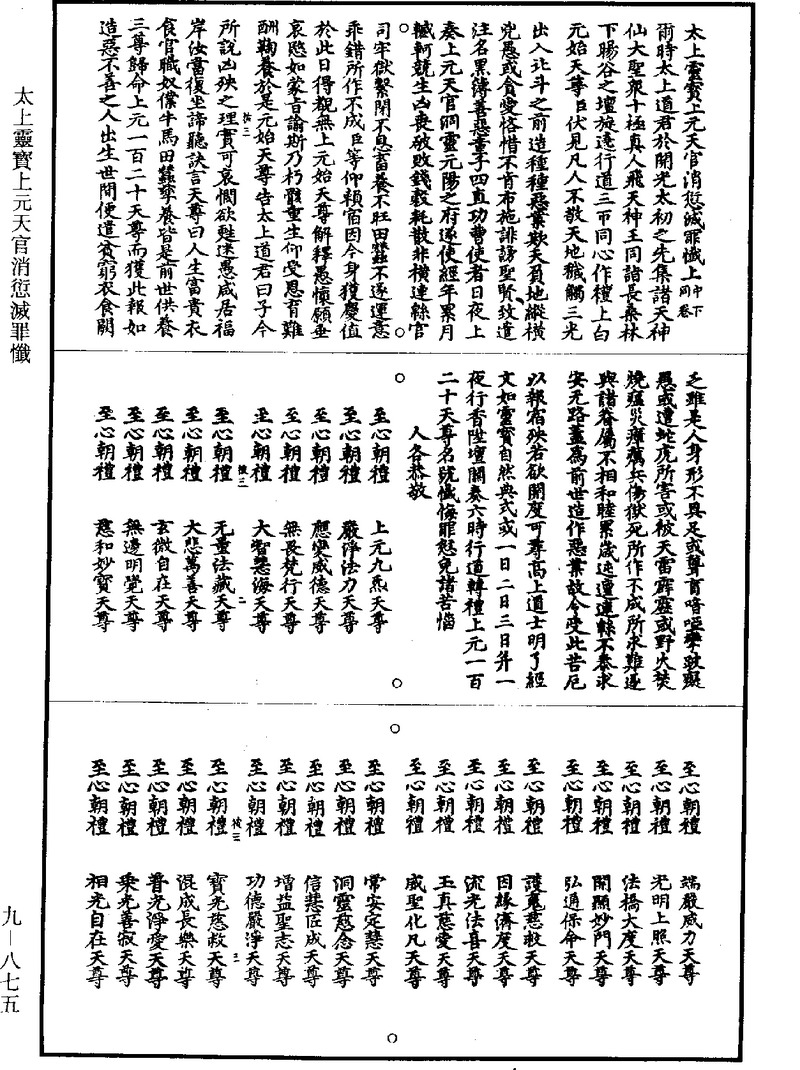 太上靈寶上元天官消愆滅罪懺
九—八七五
太上靈寶上元天官消愆滅罪懺上中下同卷
爾時太上道君於開光太初之先集諸天神
仙大聖衆十極真人飛天神王同詣長桑林
下暘谷之壇旋遶行道三帀同心作禮上白
元始天尊臣伏見凡人不敬天地穢觸三光
出入北斗之前造種種惡業欺天負地縱橫
兇愚或貪愛恡惜不肯布施誹謗聖賢致遣
注名黑簿善惡童子四直功曹使者日夜上
奏上元天官洞靈元陽之府遂使經年累月
轗軻競生凶喪破敗錢穀耗散非橫連縣官
司牢獄繫閉不息畜養不旺田蠶不逐運意
乖錯所作不成臣等仰賴宿因今身獲慶值
於此日得覩無上元始天尊解釋愚懷願垂
哀愍如蒙旨諭斯乃朽骸重生仰受恩育難
酬鞠養於是元始天尊告太上道君曰子今
所說凶殃之理實可哀憫欲甦迷愚咸居福
岸汝當復坐諦聽訣言天尊曰人生富貴衣
食官職奴僕牛馬田蠶孳養皆是前世供養
三尊歸命上元一百二十天尊而獲此報如
造惡不善之人出生世間便遣貧窮衣食闕
乏雖是人身形不具足或聾盲喑瘂攣跛癡
愚或遭蛇虎所害或被天雷霹靂或野火焚
燒瘟災癉癘兵傷獄死所作不成所求難遂
與諸眷屬不相和睦累歲迍邅連綿不泰求
安无路蓋爲前世造作惡業故令受此苦厄
以報宿殃若欲開度可尋高上道士明了經
文如靈寶自然典式或一日二日三日并一
夜行香陞壇關奏六時行道轉禮上元一百
二十天尊名號懺悔罪愆免諸苦惱
人各恭敬
至心朝禮 上元九炁天尊
至心朝禮 嚴淨法力天尊
至心朝禮 應變威德天尊
至心朝禮 無畏梵行天尊
至心朝禮 大智慧海天尊
至心朝禮 无量法藏天尊
至心朝禮 大悲萬善天尊
至心朝禮 玄微自在天尊
至心朝禮 無邊明覺天尊
至心朝禮 慈和妙寶天尊
至心朝禮 端嚴威力天尊
至心朝禮 光明上照天尊
至心朝禮 法橋大度天尊
至心朝禮 開顯妙門天尊
至心朝禮 弘通保命天尊
至心朝禮 護鬼慈救天尊
至心朝禮 因緣濟度天尊
至心朝禮 流光法喜天尊
至心朝禮 玉真慈愛天尊
至心朝禮 威聖化凡天尊
至心朝禮 常安定慧天尊
至心朝禮 洞靈慈念天尊
至心朝禮 信慧匠成天尊
至心朝禮 增益聖志天尊
至心朝禮 功德嚴淨天尊
至心朝禮 寶光慈救天尊
至心朝禮 混成長樂天尊
至心朝禮 普光淨愛天尊
至心朝禮 乘光善寂天尊
至心朝禮 相光自在天尊